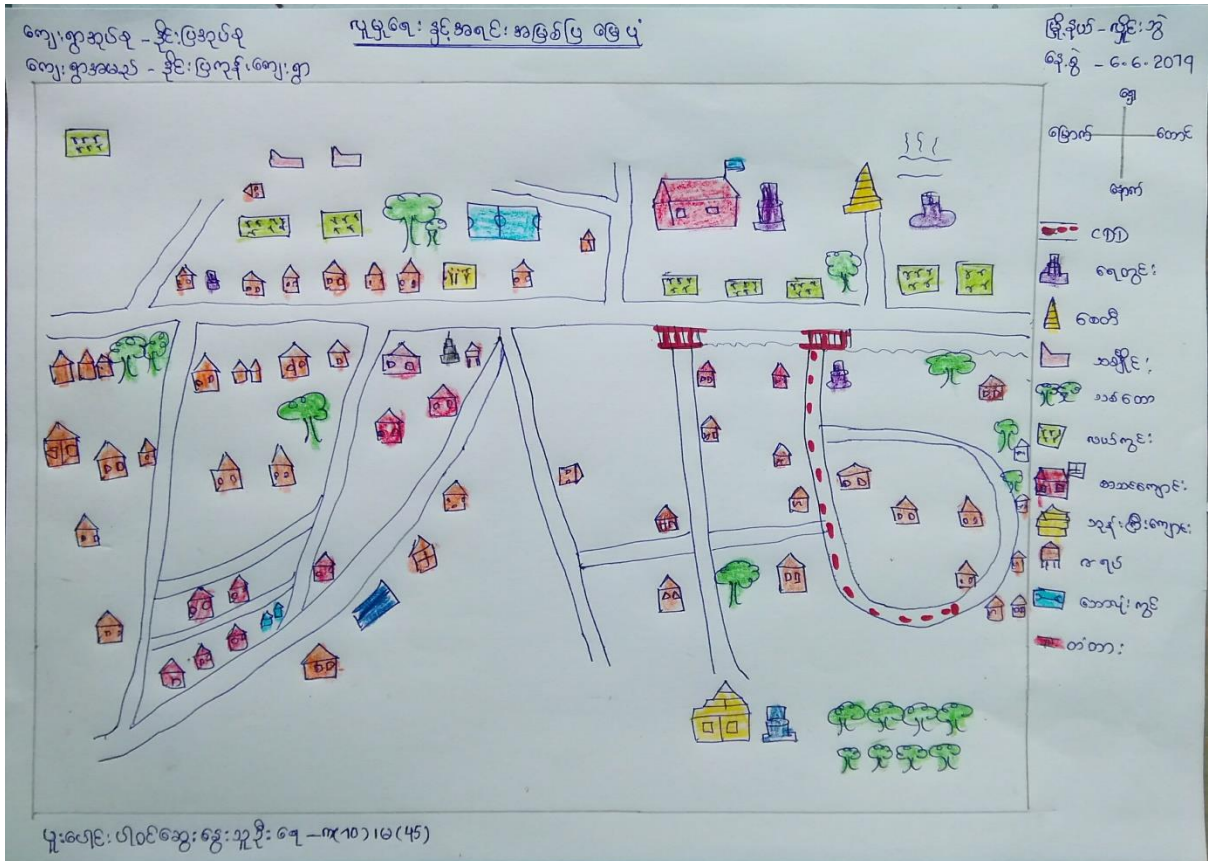 ကျေးရွာအုပ်စု - ဒိုင်းပြအုပ်စု
ကျေးရွာအမည် - ဒိုင်းပြကုန်းကျေးရွာ
လူမှုရေး နှင့်အရင်းအမြစ်ပြ မြေပုံ
မြို့နယ် - လှိုင်းဘွဲ
နေ့စွဲ - 6-6-2019
ရှေ့
မြောက်
တောင်
နောက်
CDD
ရေတွင်း
စေတီ
သင်္ချိုင်း
သစ်တော
လယ်ကွင်း
စာသင်ကျောင်း
ဘုန်းကြီးကျောင်း
ဇရပ်
ဘောလုံးကွင်း
တံတား
ပူးပေါင်းပါဝင်ဆွေးနွေးသူဦးရေ - ကျ(10)၊မ(45)